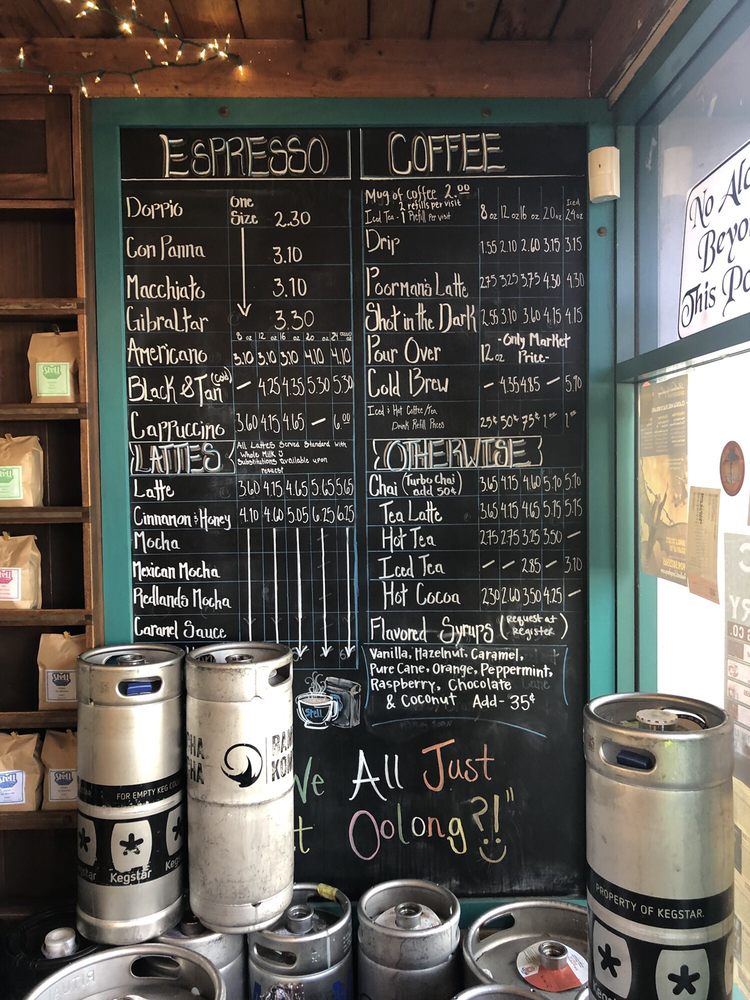 ESPRESSO
Doppio One Size 2.30
Con Panna 3.10
Macchiato 3.10
Gibraltar 3.30
8 oz 12 oz 16 oz 20 oz 24 oz
Americano 3.10 3.10 3.10 4.10 4.10
Black & Tan (Cold) – 4.25 4.35 5.30 5.30
Cappuccino 3.60 4.15 4.65 – 6.00
LATTES
All Lattes Served Standard with
Whole Milk
Substitutions available upon
request
Latte 3.60 4.15 4.65 5.65 5.65
Cinnamon & Honey 4.10 4.60 5.05 6.25 6.25
Mocha
Mexican Mocha
Redlands Mocha
Caramel Sauce
COFFEE
Mug of coffee 2.00
2 refills per visit
Iced Tea - 1 Refill Per visit
8 oz 12 oz 16 oz 20 oz Iced 24 oz
Drip 1.55 2.10 2.60 3.15 3.15
Poorman's Latte 2.75 3.25 3.75 4.30 4.30
Shot in the Dark 2.55 3.10 3.60 4.15 4.15
Pour Over 12 oz -Only Market
Price-
Cold Brew – 4.35 4.85 – 5.90
Iced & Hot Coffee/Tea
Drink Refill Prices 25¢ 50¢ 75¢ 1.00 1.00
OTHERWISE
Chai (Turbo Chai add 50¢) 3.65 4.15 4.60 5.70 5.70
Tea Latte 3.65 4.15 4.65 5.75 5.75
Hot Tea 2.75 2.75 3.25 3.50 –
Iced Tea – – 2.85 – 3.70
Hot Cocoa 2.30 2.60 3.50 4.25 –
Flavored Syrups (Request at Register)
Vanilla, Hazelnut, Caramel,
Pure Cane, Orange, Peppermint,
Raspberry, Chocolate
& Coconut Add- 35¢
We All Just
Oolong?!"
No Alc
Beyo
This Po
FOR EMPTY KEG
Kegstar
PROPERTY OF KEGSTAR.